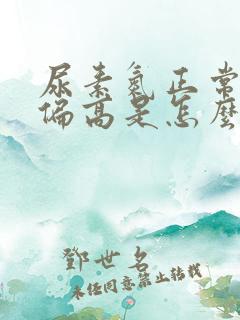 尿素氮正常
偏高是怎麼
鄧世名
未经同意禁止转载